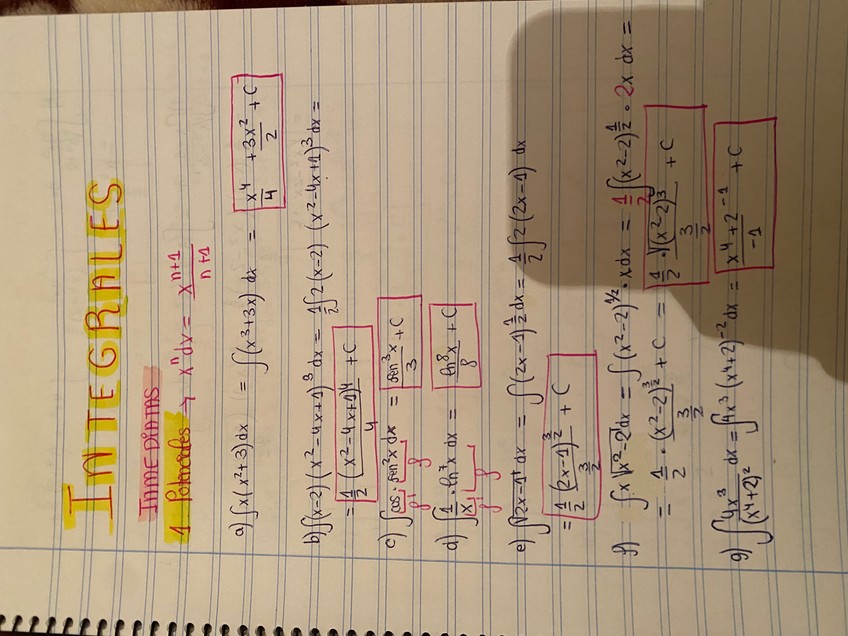 INTEGRALES
INMEDIATAS
1 Polinomiales → xⁿdx = x^(n+1)/(n+1)
a) ∫x(x²+3)dx = ∫(x³+3x)dx = x⁴/4 + 3x²/2 + C
b) ∫(x-2)(x²-4x+1)³dx = 1/2∫2(x-2)(x²-4x+1)³dx =
= 1/2 (x²-4x+1)⁴/4 + C
c) ∫cos·sen²x dx = sen³x/3 + C
f' f
d) ∫1/x·ln⁷x dx = ln⁸x/8 + C
f' f
e) ∫√2x-1 dx = ∫(2x-1)^(1/2)dx = 1/2∫2(2x-1) dx
= 1/2 (2x-1)^(3/2)/(3/2) + C
f) ∫x√x²-2 dx = ∫(x²-2)^(1/2)·x dx = 1/2∫(x²-2)^(1/2)·2x dx =
= 1/2·(x²-2)^(3/2)/(3/2) + C = 1/2·√(x²-2)³/(3/2) + C
g) ∫4x³/(x⁴+2)² dx = ∫4x³(x⁴+2)⁻²dx = x⁴+2⁻¹/-1 + C